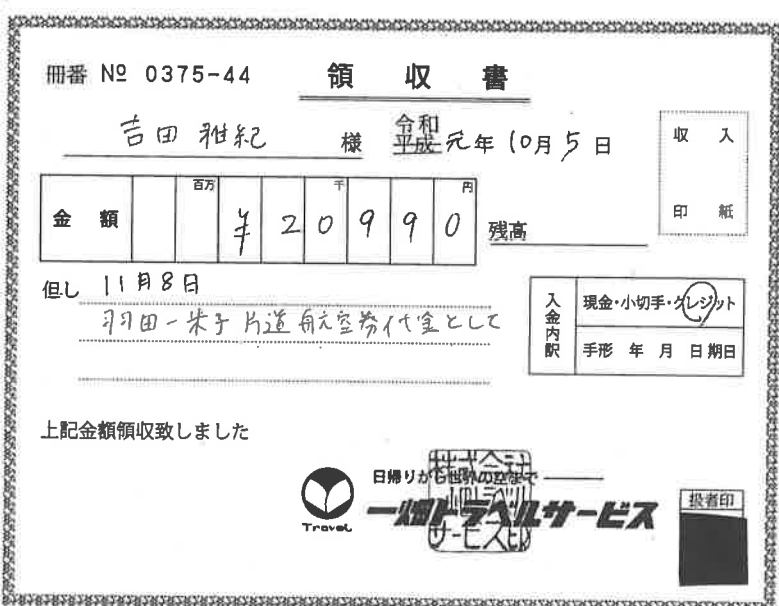 冊番 № 0375-44
領収書
吉田雅紀 様
令和
平成 元年 10月 5日
収入
印紙
金額
百万 千 円
¥20990
残高
但し 11月8日
羽田-米子 片道 航空券代金として
入金内訳
現金・小切手・クレジット
手形 年 月 日期日
上記金額領収致しました
日帰りから世界の空まで
Travel
一畑トラベルサービス
扱者印